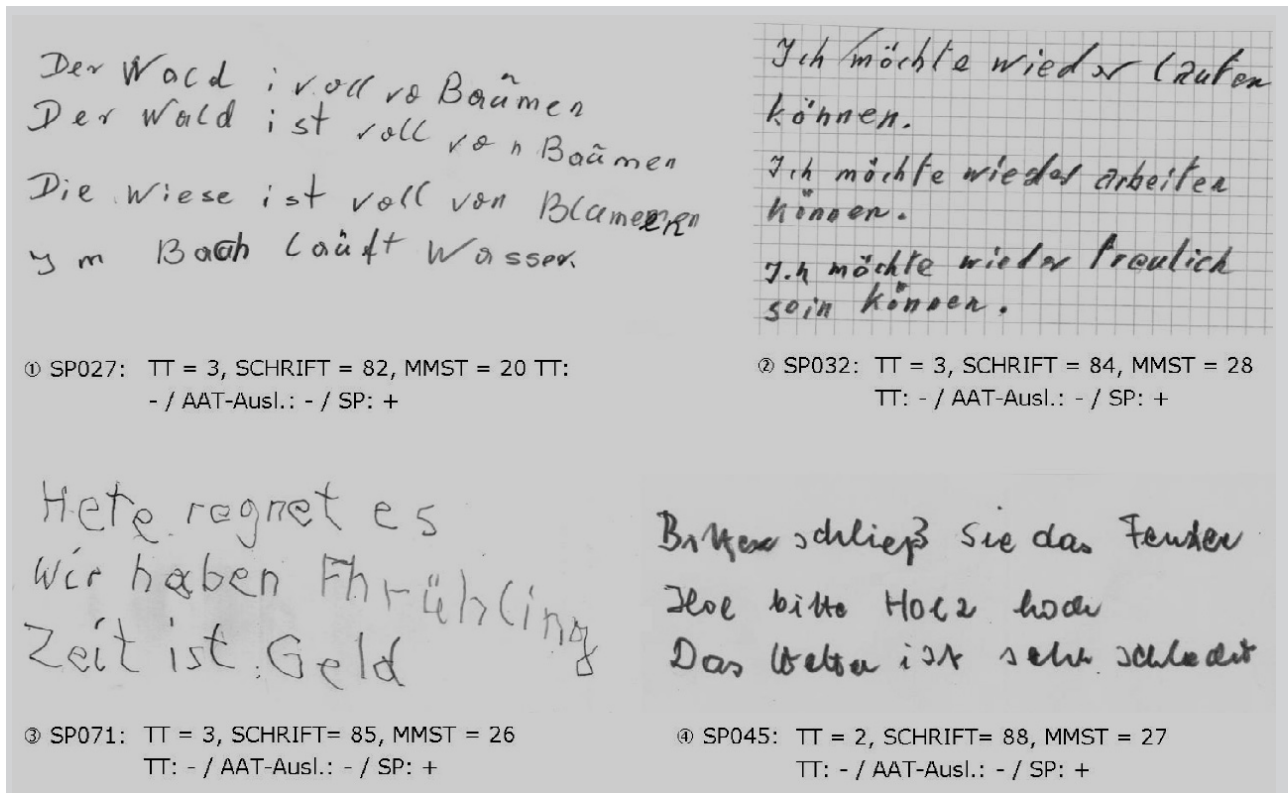 Der Wacd i voll vo Baümen
Der Wald ist voll von Baümen
Die Wiese ist voll von Blumeren
Ym Bach Läuft Wasser.
① SP027: TT = 3, SCHRIFT = 82, MMST = 20 TT:
- / AAT-Ausl.: - / SP: +
Ich möchte wieder laufen
können.
Ich möchte wieder arbeiten
können.
I.h möchte wieder freulich
sein können.
② SP032: TT = 3, SCHRIFT = 84, MMST = 28
TT: - / AAT-Ausl.: - / SP: +
Hete regnet es
Wir haben Fhrühling
Zeit ist Geld
③ SP071: TT = 3, SCHRIFT= 85, MMST = 26
TT: - / AAT-Ausl.: - / SP: +
schließ Sie das Fenster
bitte Holz hoch
Das Wetter ist sehr schlecht
④ SP045: TT = 2, SCHRIFT= 88, MMST = 27
TT: - / AAT-Ausl.: - / SP: +